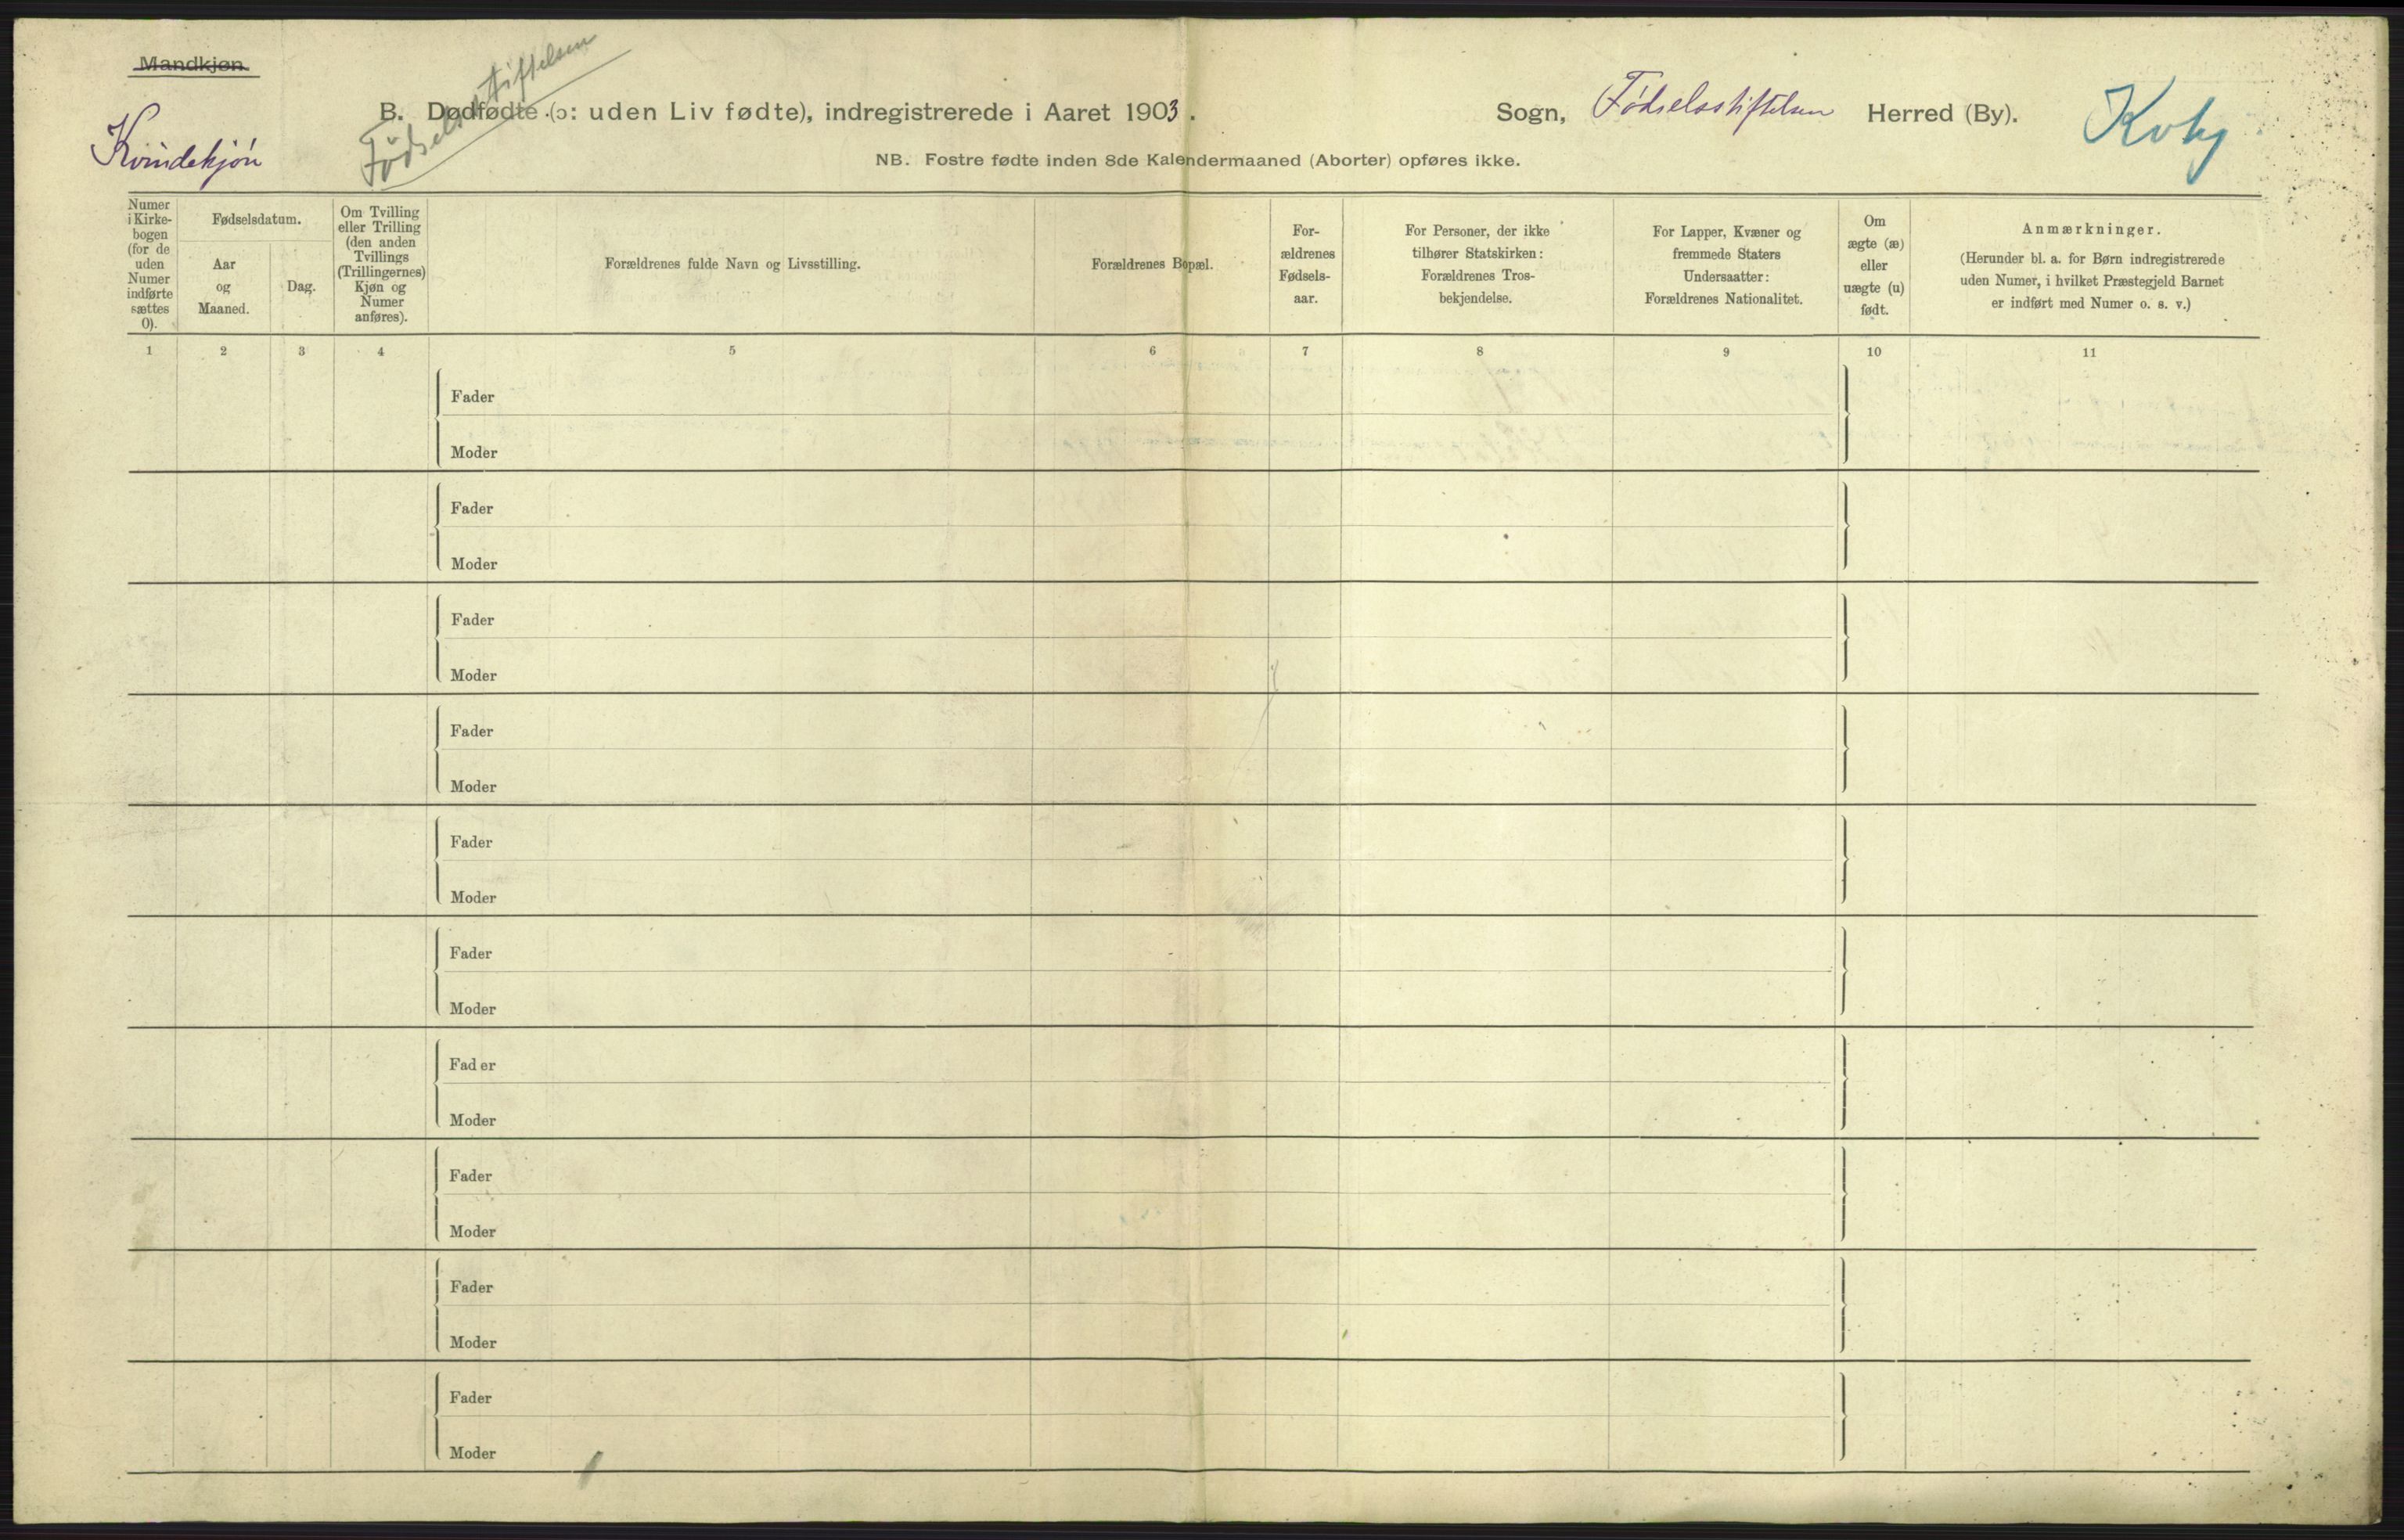 Mandkjøn
Kvindekjøn
Fødselsstiftelsen
B. Dødfødte (ɔ: uden Liv fødte), indregistrerede i Aaret 1903.
Sogn, Fødselsstiftelsen Herred (By).
NB. Fostre fødte inden 8de Kalendermaaned (Aborter) opføres ikke.
Numer
i Kirke-
bogen
(for de
uden
Numer
indførte
sættes
0).
Fødselsdatum.
Aar
og
Maaned.
Dag.
Om Tvilling
eller Trilling
(den anden
Tvillings
(Trillingernes)
Kjøn og
Numer
anføres).
Forældrenes fulde Navn og Livsstilling.
Forældrenes Bopæl.
For-
ældrenes
Fødsels-
aar.
For Personer, der ikke
tilhører Statskirken:
Forældrenes Tros-
bekjendelse.
For Lapper, Kvæner og
fremmede Staters
Undersaatter:
Forældrenes Nationalitet.
Om
ægte (æ)
eller
uægte (u)
født.
Anmærkninger.
(Herunder bl. a. for Børn indregistrerede
uden Numer, i hvilket Præstegjeld Barnet
er indført med Numer o. s. v.)
1 2 3 4 5 6 7 8 9 10 11
Fader
Moder
Fader
Moder
Fader
Moder
Fader
Moder
Fader
Moder
Fader
Moder
Fader
Moder
Fader
Moder
Fader
Moder
Fader
Moder